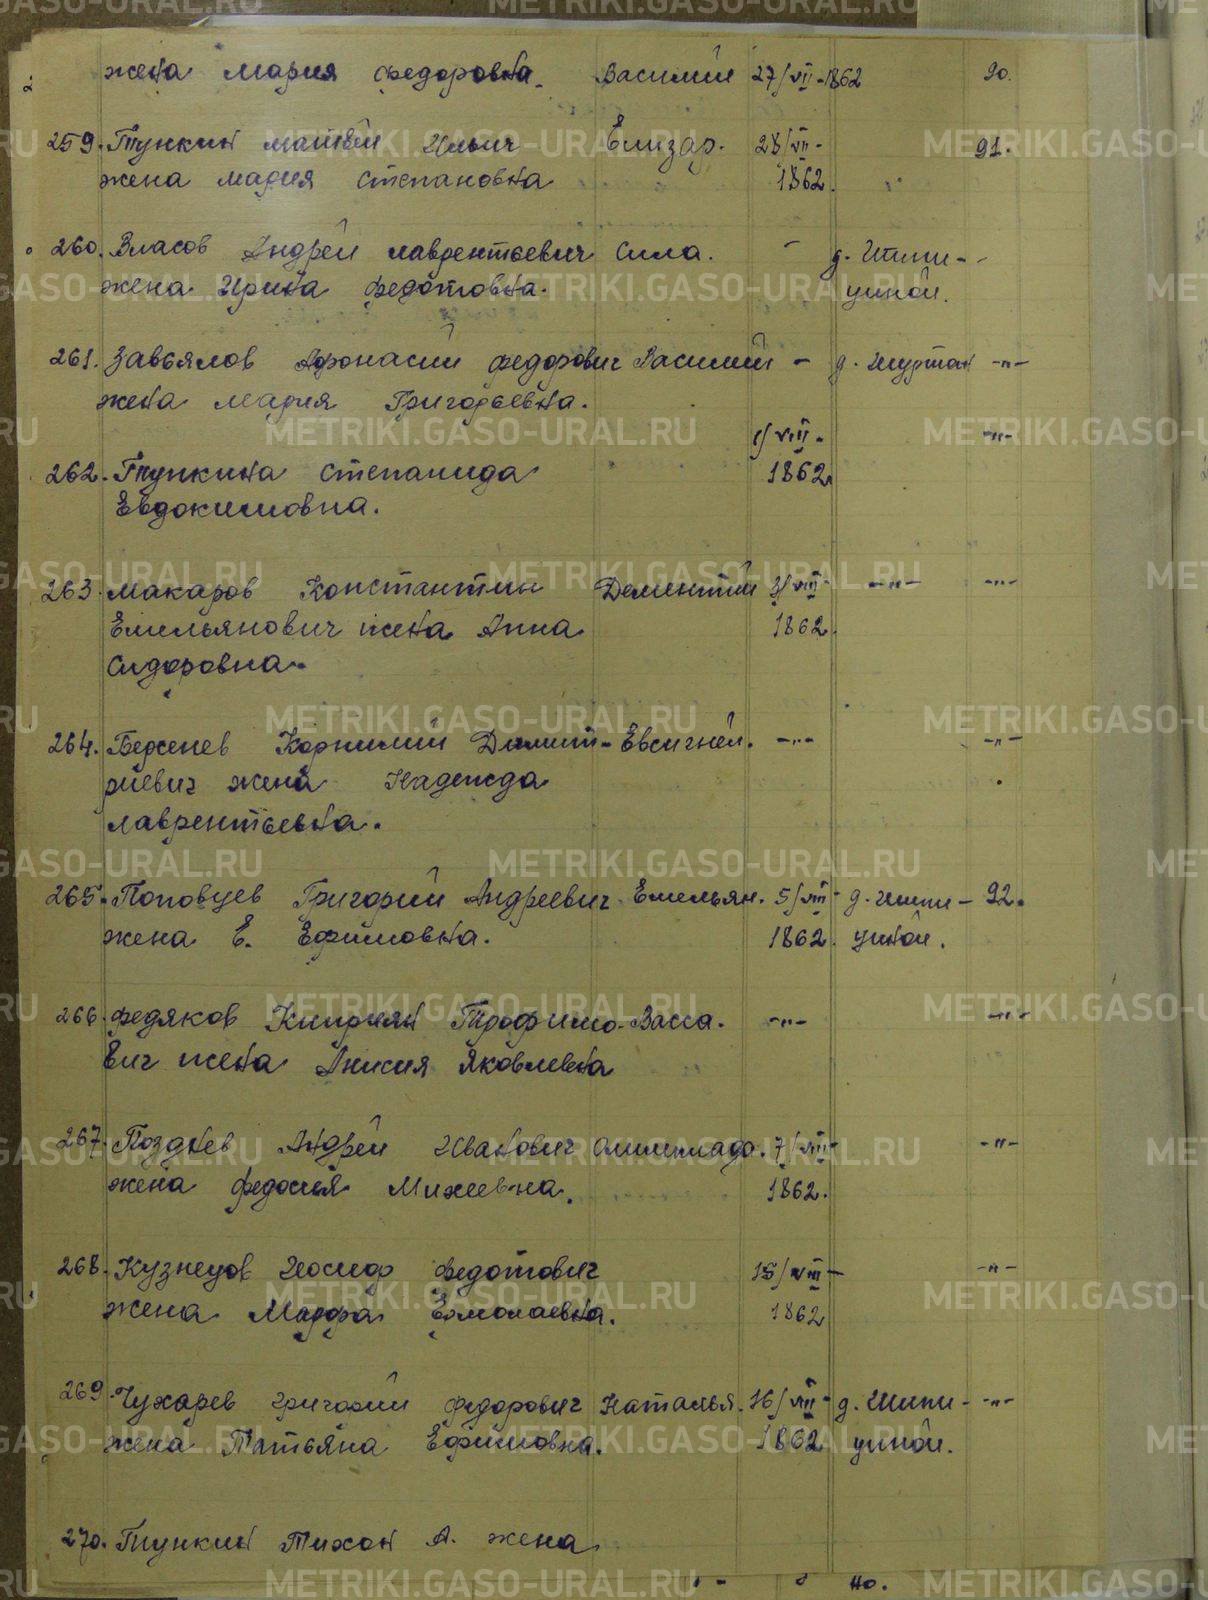 жена Мария Федоровна. Василий 27/VII-1862 90.
259. Тункин Матвей Ильич Елизар. 28/VII- 91.
жена Мария Степановна 1862.
260. Власов Андрей Лаврентьевич Сила. - д. Шипи-
жена Ирина Федотовна. циной.
261. Завьялов Афонасий Федорович Василий - д. Шуртан -"-
жена Мария Григорьевна.
1/VIII- -"-
262. Тункина Степанида 1862.
Евдокимовна.
263. Макаров Константин Дементий 3/VIII- -"- -"-
Емельянович жена Анна 1862.
Сидоровна.
264. Корнилий Димит- Евсигней. -"- -"-
риевич жена Надежда
Лаврентьевна.
265. Поповцев Григорий Андреевич Емельян. 5/VIII- д. Шипи- 92.
жена Е. Ефимовна. 1862. циной.
266. Федяков Киприян Трофимо- Васса. -"- -"-
вич жена Анисия Яковлевна
267. Позднев Андрей Иванович Олимпиада. 7/VIII- -"-
жена Федосья Михеевна. 1862.
268. Кузнецов Иосиф Федотович 15/VIII- -"-
жена Марфа Ермолаевна. 1862
269. Чухарев Григорий Федорович Наталья. 16/VIII- д. Шипи- -"-
жена Татьяна Ефимовна. 1862 циной.
270. Тункин Тихон А. жена
METRIKI.GASO-URAL.RU